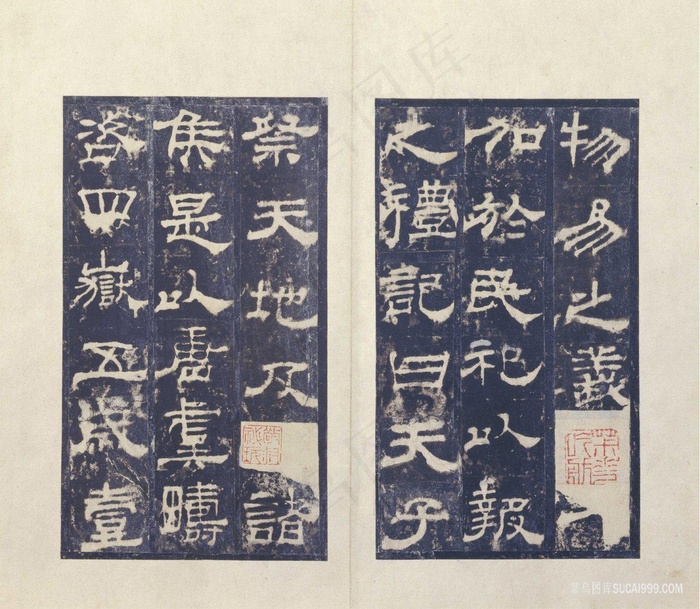 物易之義
加於民祀以報
之禮記曰天子
祭天地及
諸
侯是以唐虞疇
咨四嶽五歲壹
菜鸟图库SUCAI999.COM